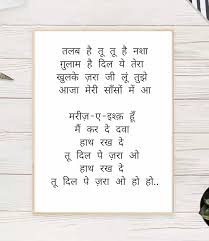 तलब है तू तू है नशा
ग़ुलाम है दिल ये तेरा
खुलके ज़रा जी लूं तुझे
आजा मेरी साँसों में आ
मरीज़-ए-इश्क़ हूँ
मैं कर दे दवा
हाथ रख दे
तू दिल पे ज़रा ओ
हाथ रख दे
तू दिल पे ज़रा ओ हो हो..